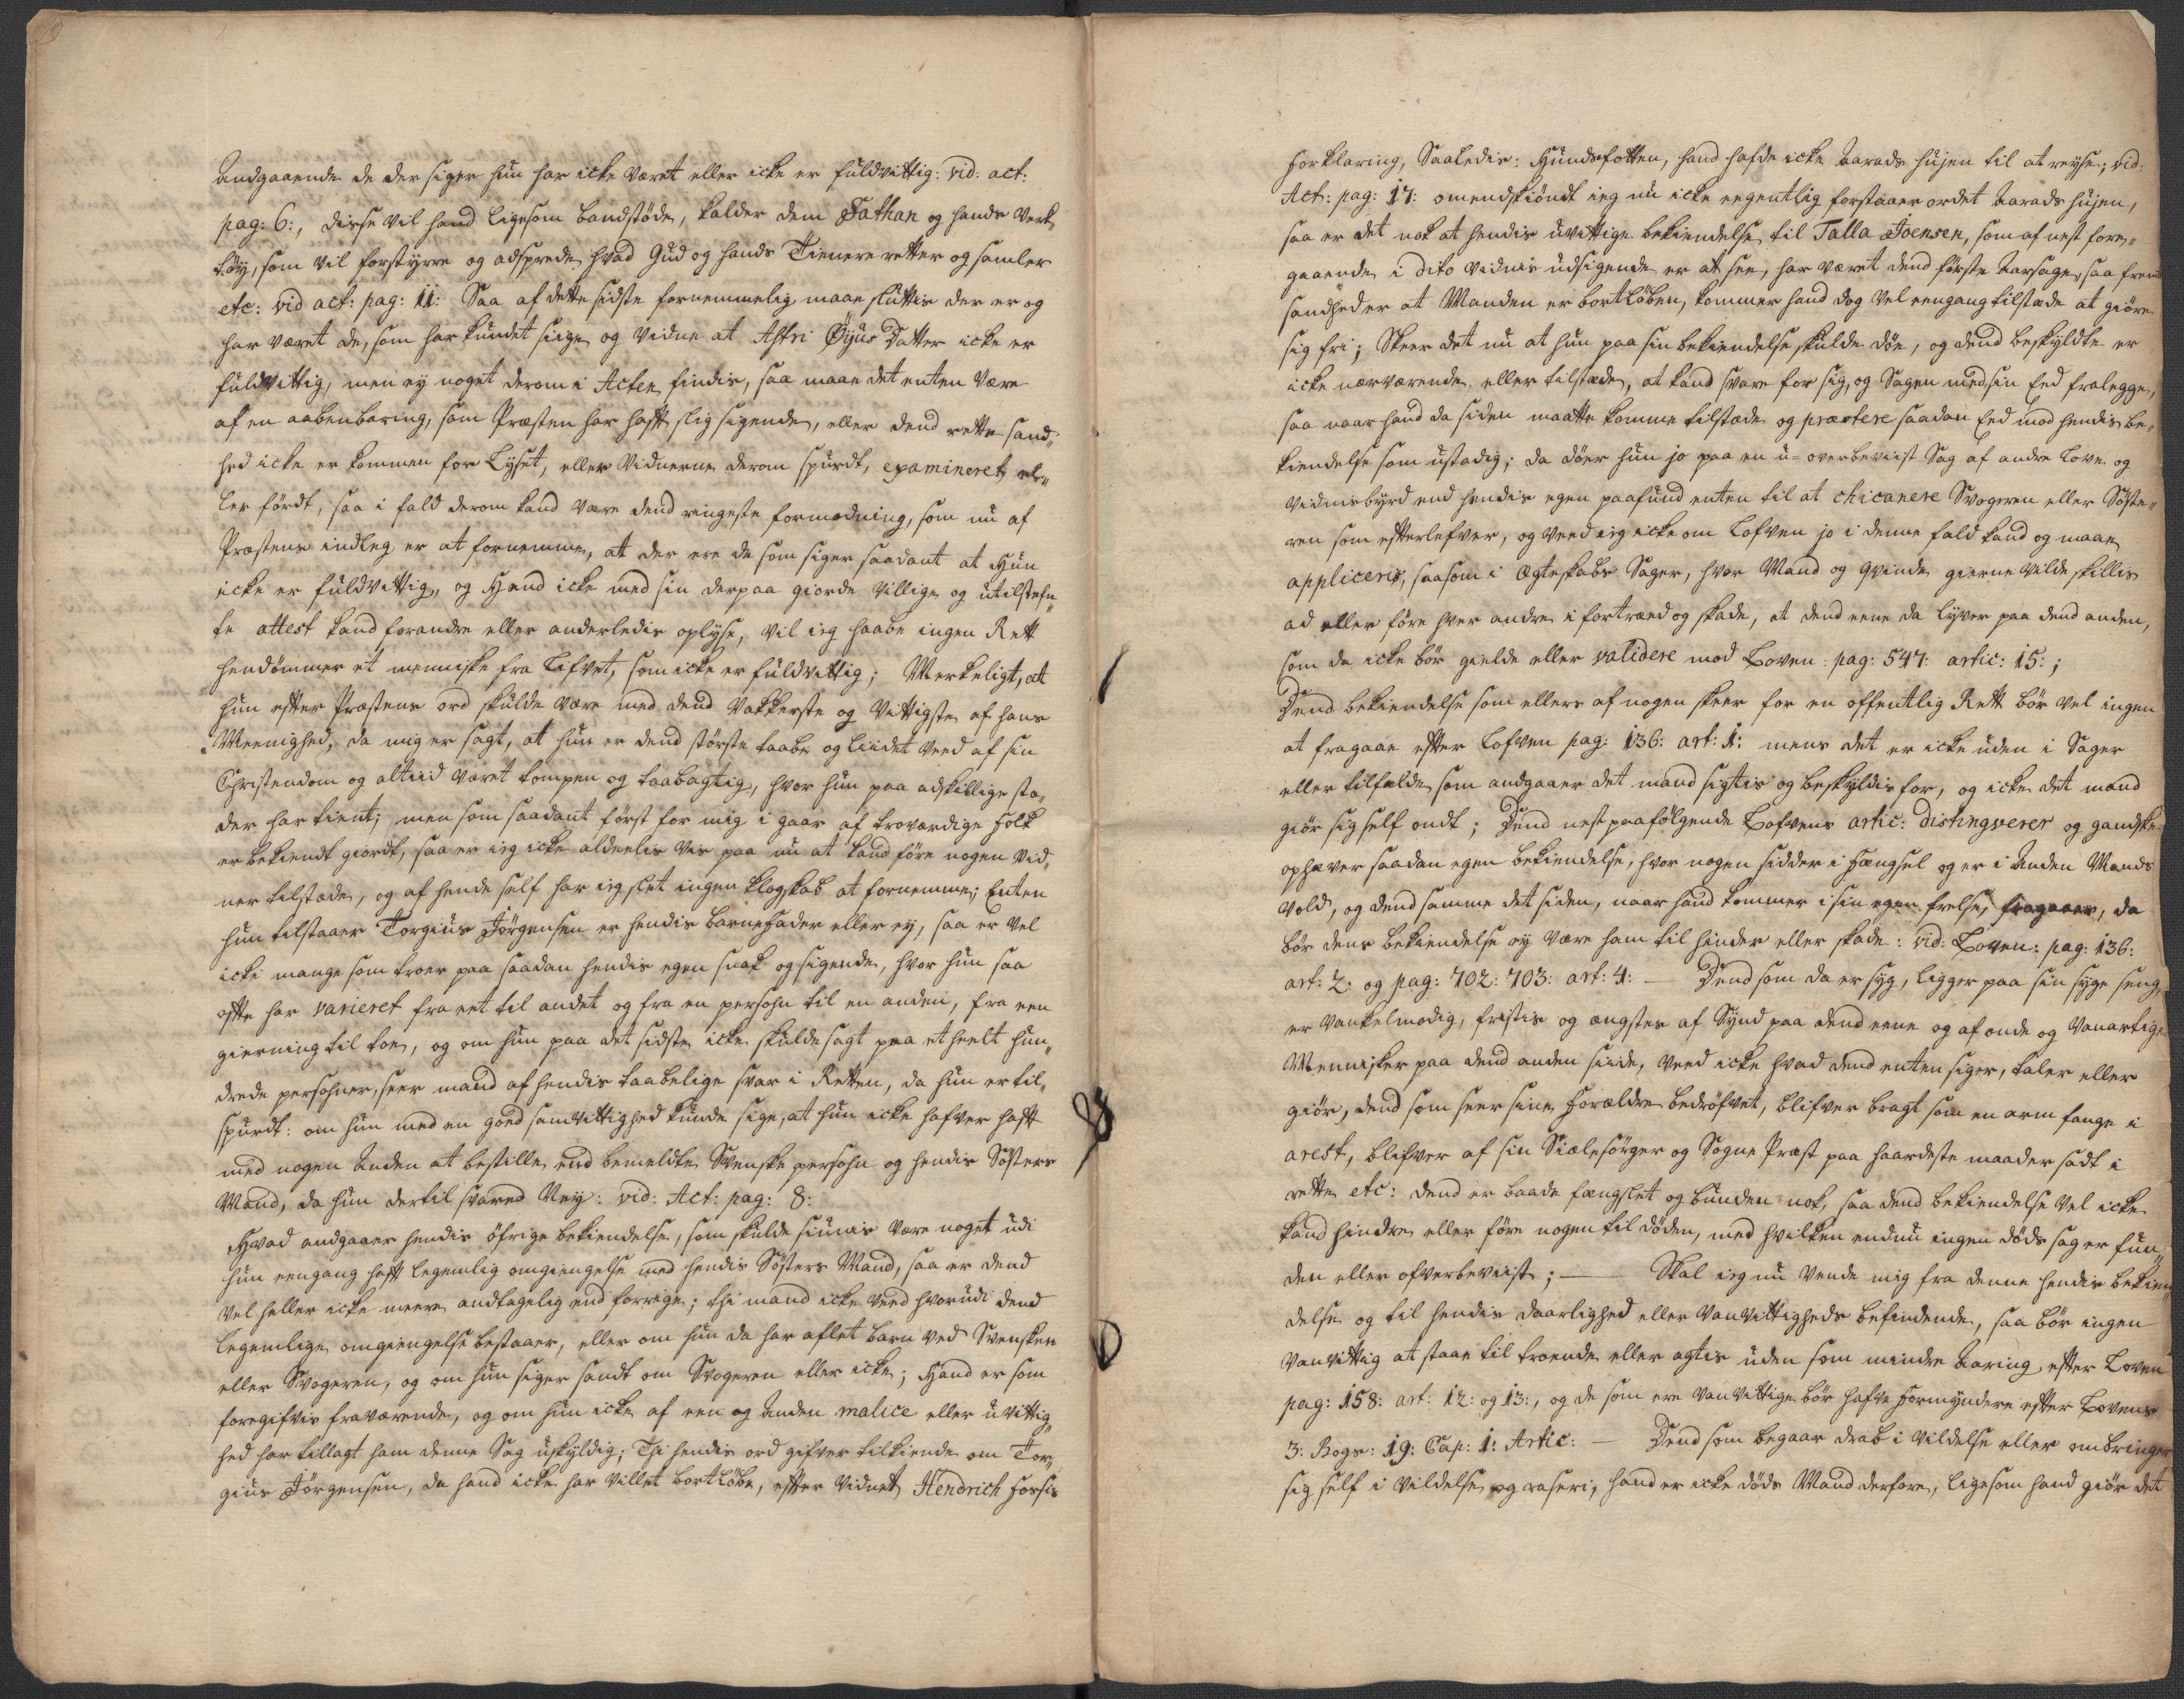 Andgaaende de der siger hun har icke været eller icke er fuldvittig: vid: act:
pag: 6:, disse vil hand ligesom bandstöde, kalder dem Sathan og hands Verk
töy, som vil forstyrre og adsprede hvad Gud og hands Tienere retter og samler
etc: vid act: pag: 11: Saa af dette sidste fornemmelig maae sluttis der er og
har været de, som har kundet siige og vidne at Astri Öyus Datter icke er
fuldvittig, men ey noget derom i Acten findis, saa maae det enten være
af en aabenbaring, som Præsten har hafft slig sigende, eller dend rette sand„
hed icke er kommen for Lyset, eller Vidnerne derom spurdt, examineret el„
ler fördt, saa i fald derom kand være dend ringeste formodning, som nu af
Præstens indleg er at fornemme, at der ere de som siger saadant at Hun
icke er fuldvittig, og Hand icke med sin derpaa giorde villige og utilstefn„
te attest kand forandre eller anderledis oplyse, vil ieg haabe ingen Rett
hendömmer et menniske fra Lifvet, som icke er fuldvittig; Merkeligt, at
hun efter Præstens ord skulde være med dend vakkerste og vittigste af hans
Meenighed, da mig er sagt, at hun er dend störste taabe og liidet veed af sin
Christendom og altiid været tompen og taabagtig, hvor hun paa adskillige stæ„
der har tient; men som saadant först for mig i gaar af troværdige Folk
er bekiendt giordt, saa er ieg icke aldeelis vis paa nu at kand före nogen Vid„
ner tilstæde, og af hende self har ieg slet ingen klogskab at fornemme; Enten
hun tilstaaer Torgius Jörgensen er hendis barnefader eller ey, saa er vel
icke mange som troer paa saadan hendis egen snak og sigende, hvor hun saa
offte har varieret fra eet til andet og fra en persohn til en anden, fra een
gierning til toe, og om hun paa det sidste icke skulde sagt paa et heelt hun„
drede persohner, seer mand af hendis taabelige svar i Retten, da hun er til„
spurdt: om hun med en goed samvittighed kunde sige, at hun icke hafver hafft
med nogen Anden at bestille end bemeldte Svenske persohn og hendis Sösters
Mand, da hun dertil svared Ney: vid: Act: pag: 8:
Hvad andgaaer hendis öfrige bekiendelse, som skulde siunis være noget udi
hun eengang hafft legemlig omgiengelse med hendis Sösters Mand, saa er dend
vel heller icke meere andtagelig end forrige; thi mand icke veed hvorudi dend
legemlige omgiengelse bestaaer, eller om hun da har aflet barn ved Svensken
eller Svogeren, og om hun siger sandt om Svogeren eller icke; Hand er som
foregifvis fraværende, og om hun icke af een og Anden malice eller uvittig„
hed har tillagt ham denne Sag uskyldig; Thi hendis ord gifver tilkiende om Tor„
gius Jörgensen, da hand icke har villet bortlöbe, efter vidnet Hendrich Forsis
forklaring, Saaledis: Hundsfotten, hand hafde icke Aarads hujen til at reyse; vid:
Act: pag: 17: omendskiöndt ieg nu icke eegentlig forstaaer ordet Aarads hujen,
saa er det nok at hendis uvittige bekiendelse til Talla Joensen, som af nest fore„
gaaende i dito vidnis udsigende er at see, har været dend förste Aarsage, saa frem
sandhed er at Manden er bortlöben, kommer hand dog vel eengang tilstæde at giöre
sig fri; Skeer det nu at hun paa sin bekiendelse skulde döe, og dend beskyldte er
icke nærværende eller tilstæde, at kand svare for sig, og Sagen med sin Eed fralegge,
saa naar hand da siden maatte komme tilstæde og præstere saadan Eed mod hendis be„
kiendelse som ustadig; da döer hun jo paa en u=overbeviist Sag af andre Love og
vidnisbyrd end hendis egen paafund enten til at chicanere Svogeren eller Söste„
ren som efterlefver, og veed ieg icke om Lofven jo i denne fald kand og maae
appliceris, saasom i Ægteskabs Sager, hvor Mand og Qvinde gierne vilde skillis
ad eller före hver andre i fortræd og skade, at dend eene da lyver paa dend anden,
som da icke bör gielde eller validere mod Loven: pag: 547: artic: 15:;
Dend bekiendelse som ellers af nogen skeer for en offentlig Rett bör vel ingen
at fragaae efter Lofven pag: 136: art: 1: mens det er icke uden i Sager
eller tilfælde som andgaaer det mand sigtis og beskyldis for, og icke det mand
giör sig self ondt; Dend nest paafölgende Lofvens artic: distingverer og gandske
ophæver saadan egen bekiendelse, hvor nogen sidder i Fængsel og er i Anden Mands
vold, og dend samme det siden, naar hand kommer i sin egen frelse, fragaaer, da
bör dens bekiendelse ey være ham til hinder eller skade: vid: Loven: pag: 136:
art: 2: og pag: 702: 703: art: 4: — Dend som da er syg, ligger paa sin syge seng,
er vankelmodig, fristis og ængstes af Synd paa dend eene og af onde og vanartige
Mennisker paa dend anden siide, veed icke hvad dend enten siger, taler eller
giör, dend som seer sine Forældre bedröfvet, blifver bragt som en arm fange i
arest, blifver af sin Siælesörger og Sogne Præst paa haardeste maader sadt i
rette etc: dend er baade fængslet og bunden nok, saa dend bekiendelse vel icke
kand hindre eller före nogen til döden, med hvilken endnu ingen döds sag er fun„
den eller ofverbeviist; — Skal ieg nu vende mig fra denne hendis bekien„
delse og til hendis daarlighed eller vanvittigheds befindende, saa bör ingen
vanvittig at staae til troende eller agtis uden som mindre Aaring, efter Loven
pag: 158: art: 12: og 13:, og de som ere vanvittige bör hafve Formyndere efter Lovens
3: Bogs: 19: Cap: 1: Artic: — Dend som begaar drab i vildelse eller ombringer
sig self i vildelse og raseri, hand er icke döds Mand derfore, ligesom hand giör det